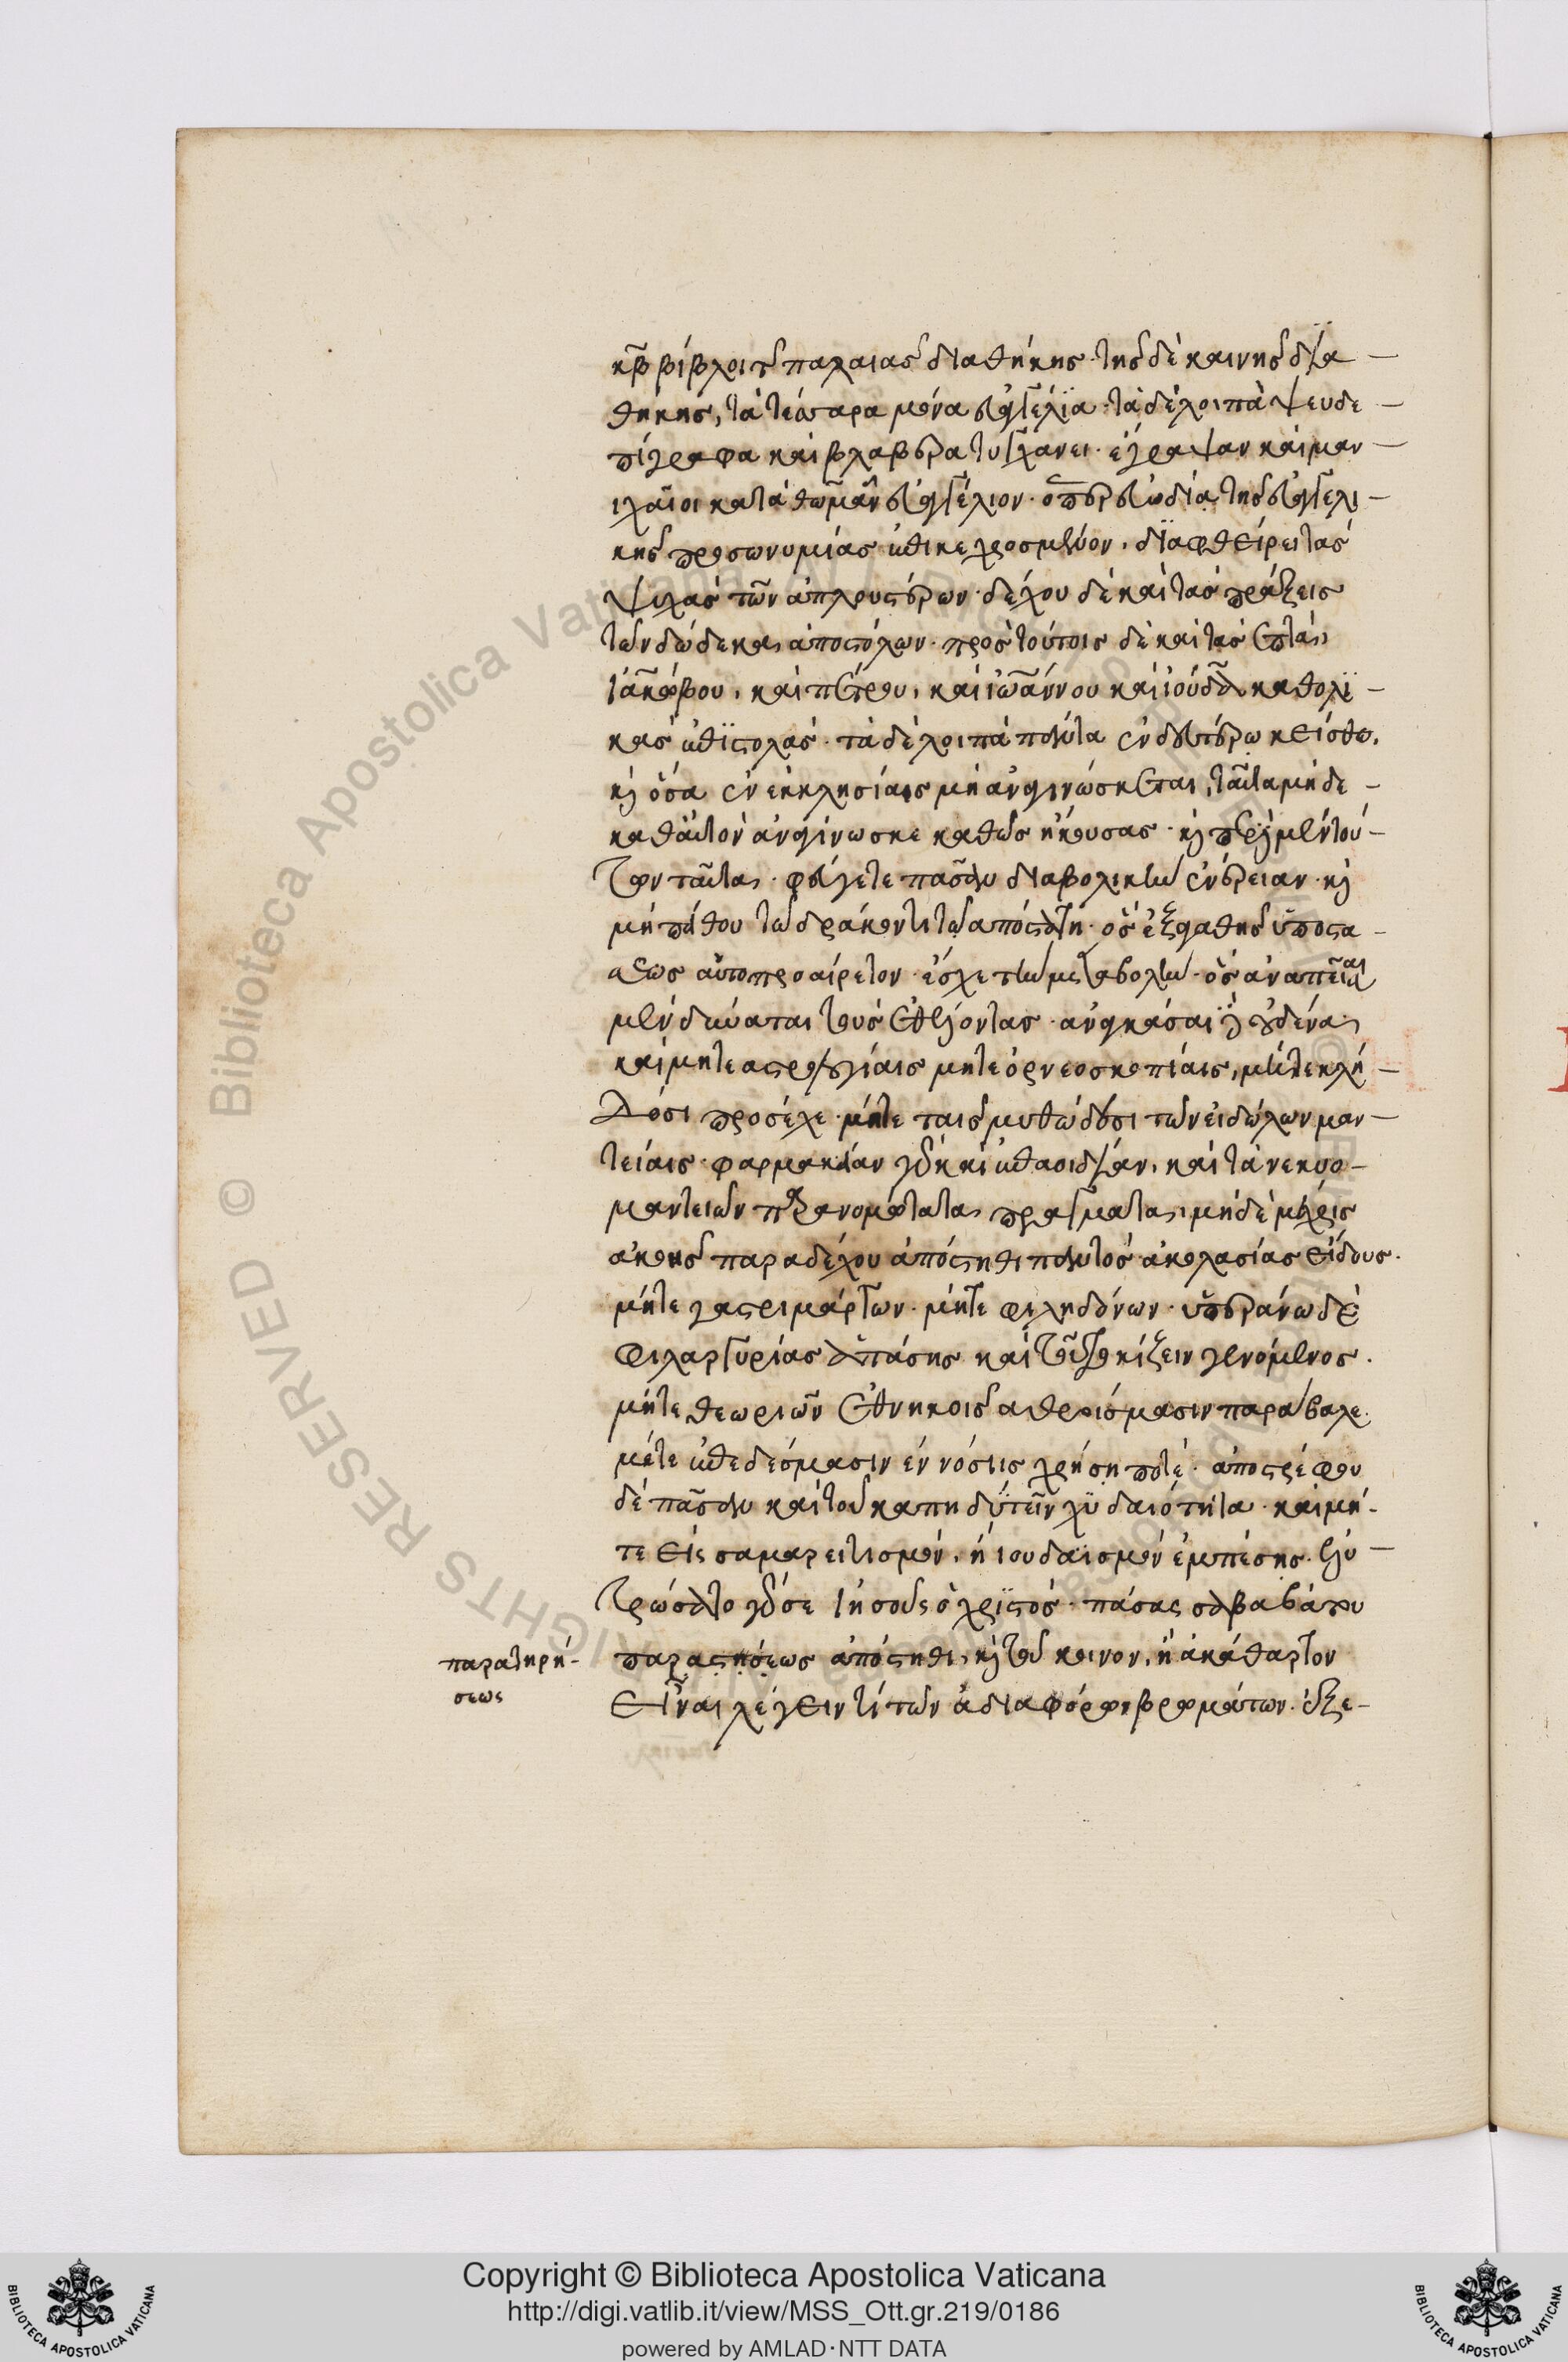 κβ βίβλοις παλαιᾶς διαθήκης· τῆς δὲ καινῆς δια
θήκης, τὰ τέσσαρα μόνα εὐαγγέλια· τὰ δὲ λοιπὰ ψευδε
πίγραφα καὶ βλαβερὰ τυγχάνει· ἔγραψαν καὶ μαν
ιχαῖοι κατὰ θωμᾶν εὐαγγέλιον· ὅπερ εὐωδία τῆς εὐαγγελι
κῆς προσωνυμίας ἐπικεχρωσμένον, διαφθείρει τὰς
ψυχὰς τῶν ἁπλουστέρων· δέχου δὲ καὶ τὰς πράξεις
τῶν δώδεκα ἀποστόλων· πρὸς τούτοις δὲ καὶ τὰς ἑπτὰ,
ἰακώβου, καὶ πέτρου, καὶ ἰωάννου καὶ ἰούδα καθολι
κὰς ἐπιστολάς· τὰ δὲ λοιπὰ πάντα ἐν δευτέρω κείσθω,
καὶ ὅσα ἐν ἐκκλησίαις μὴ ἀναγινώσκεται, ταῦτα μηδὲ
καθαυτὸν ἀναγίνωσκε καθὼς ἤκουσας· καὶ περὶ μὲν τού
των ταῦτα· φεύγετε πᾶσαν διαβολικὴν ἐνέργειαν· καὶ
μὴ πείθου τῶ δράκοντι τῶ ἀποστάτη· ὃς ἐξ ἀγαθῆς ὑποστά
σεως αὐτοπροαίρετον ἔσχε τὴν μεταβολήν· ὃς ἀναπεῖσαι
μὲν δύναται τοὺς ἐθέλοντας· ἀναγκάσαι δὲ οὐδένα,
καὶ μήτε ἀστρολογίαις μήτε ὀρνεοσκοπίαις, μήτε κλη
δόσι πρόσεχε· μήτε ταῖς μυθώδεσι τῶν εἰδώλων μαν
τείαις· φαρμακείαν γὰρ καὶ ἐπαοιδίαν, καὶ τὰ νεκυο
μαντειῶν παρανομώτατα πράγματα, μηδὲ μέχρις
ἀκοῆς παραδέχου ἀπόστηθι παντὸς ἀκολασίας εἴδους·
μήτε γαστριμάργων· μήτε φιληδόνων· ὑπεράνω δὲ
φιλαργυρίας ἁπάσης καὶ τοῦ τοκίζειν γενόμενος·
μήτε θεωριῶν ἐθνικοῖς ἀθροίσμασιν παράβαλε·
μήτε ἐπιδέσμασιν ἐν νόσοις χρήση ποτέ· ἀποστρέφου
δὲ πᾶσαν καὶ τοῦ καπηλεύειν χυδαιότητα· καὶ μή
τε εἰς σαμαρειτισμὸν, ἢ ἰουδαισμὸν ἐμπέσης· ἐλυ
τρώσατο γὰρ σε ἰησοῦς ὁ χριστός· πάσας σαββάτου
παραστήσεως ἀπόστηθι, καὶ τοῦ κοινὸν, ἢ ἀκάθαρτον
εἶναι λέγειν τὶ τῶν ἀδιαφόρων βρωμάτων· ἐξε
παρατηρή-
σεως
Copyright © Biblioteca Apostolica Vaticana
http://digi.vatlib.it/view/MSS_Ott.gr.219/0186
powered by AMLAD·NTT DATA